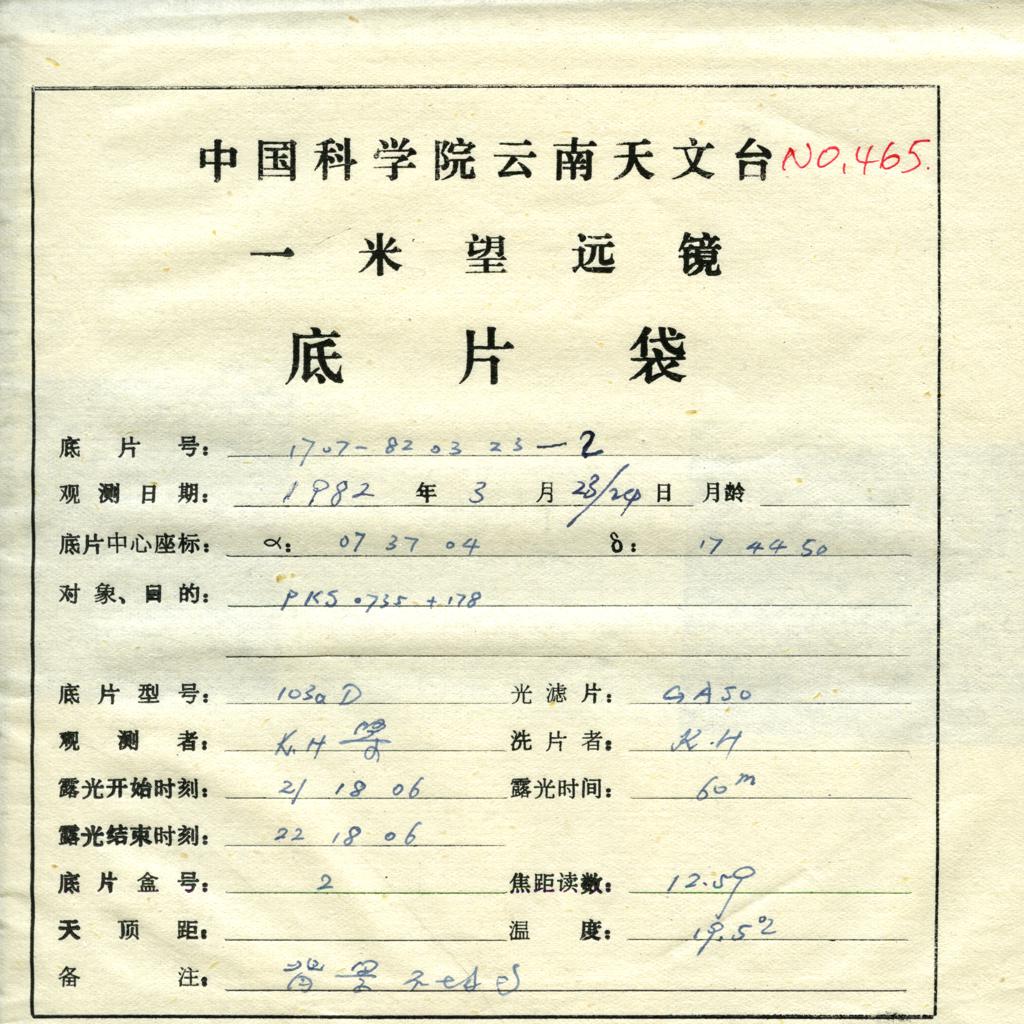 中国科学院云南天文台 NO.465.
一米望远镜
底片袋
底片号: 1707-82 03 23-2
观测日期: 1982 年 3 月 23/24 日 月龄
底片中心座标: α: 07 37 04 δ: 17 44 50
对象、目的: PKS 0735+178
底片型号: 103a D 光滤片: GA50
观测者: K.H 洗片者: K.H
露光开始时刻: 21 18 06 露光时间: 60m
露光结束时刻: 22 18 06
底片盒号: 2 焦距读数: 12.59
天顶距: 温度: 19.5°
备注: 背景不均匀